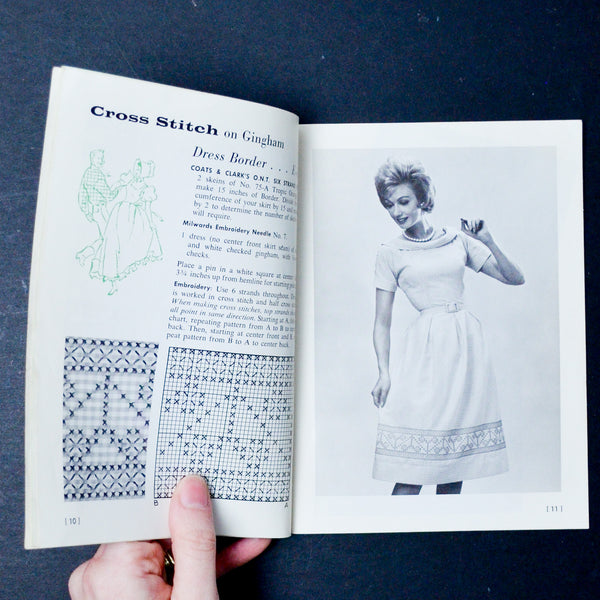 Cross Stitch on Gingham
Dress Border . . .
COATS & CLARK'S O.N.T. SIX STRAND
2 skeins of No. 75-A Tropic
make 15 inches of Border. Divide
cumference of your skirt by 15 and
by 2 to determine the number of
will require.
Milwards Embroidery Needle No. 7.
1 dress (no center front skirt
and white checked gingham, with
checks.
Place a pin in a white square at center
3¾ inches up from hemline for starting
Embroidery: Use 6 strands throughout.
is worked in cross stitch and half cross
When making cross stitches, top strands
all point in same direction. Starting at A,
chart, repeating pattern from A to B to
back. Then, starting at center front and
peat pattern from B to A to center back.
B A
[ 10 ]
[ 11 ]